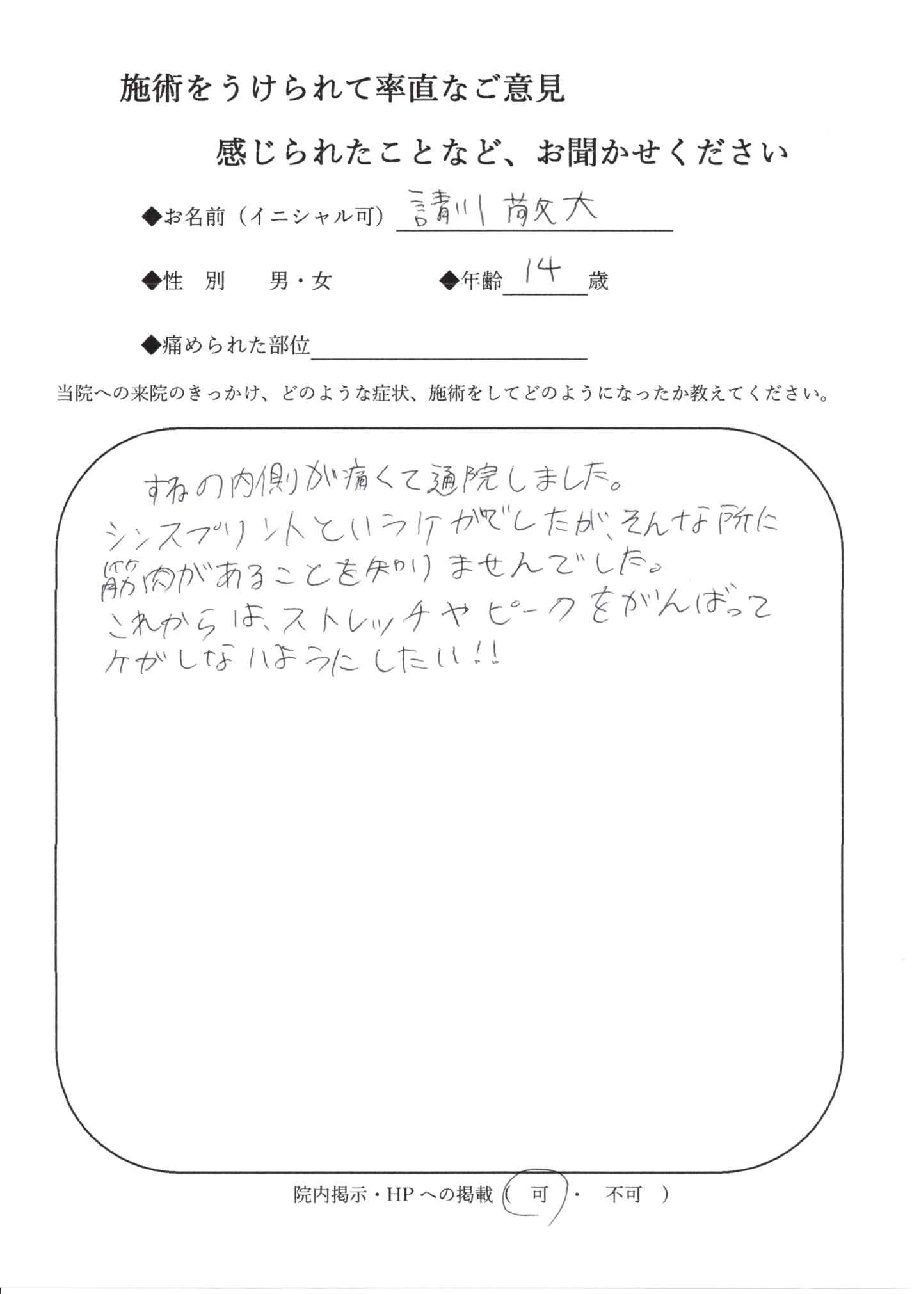 施術をうけられて率直なご意見
感じられたことなど、お聞かせください
◆お名前（イニシャル可） 請川 敬大
◆性　別　　男・女　　◆年齢 14 歳
◆痛められた部位
当院への来院のきっかけ、どのような症状、施術をしてどのようになったか教えてください。
すねの内側が痛くて通院しました。
シンスプリントというケガでしたが、そんな所に
筋肉があることを知りませんでした。
これからは、ストレッチやピークをがんばって
ケがしないようにしたい!!
院内掲示・HPへの掲載（　可　・　不可　）